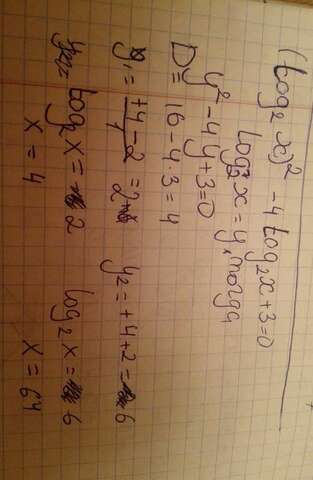 (log₂ x)² - 4 log₂x + 3 = 0
log₂x = y, тогда
y² - 4y + 3 = 0
D = 16 - 4·3 = 4
y₁ = (+4 - 2)/1 = 2 y₂ = +4 + 2 = 6
log₂x = 2 log₂x = 6
x = 4 x = 64